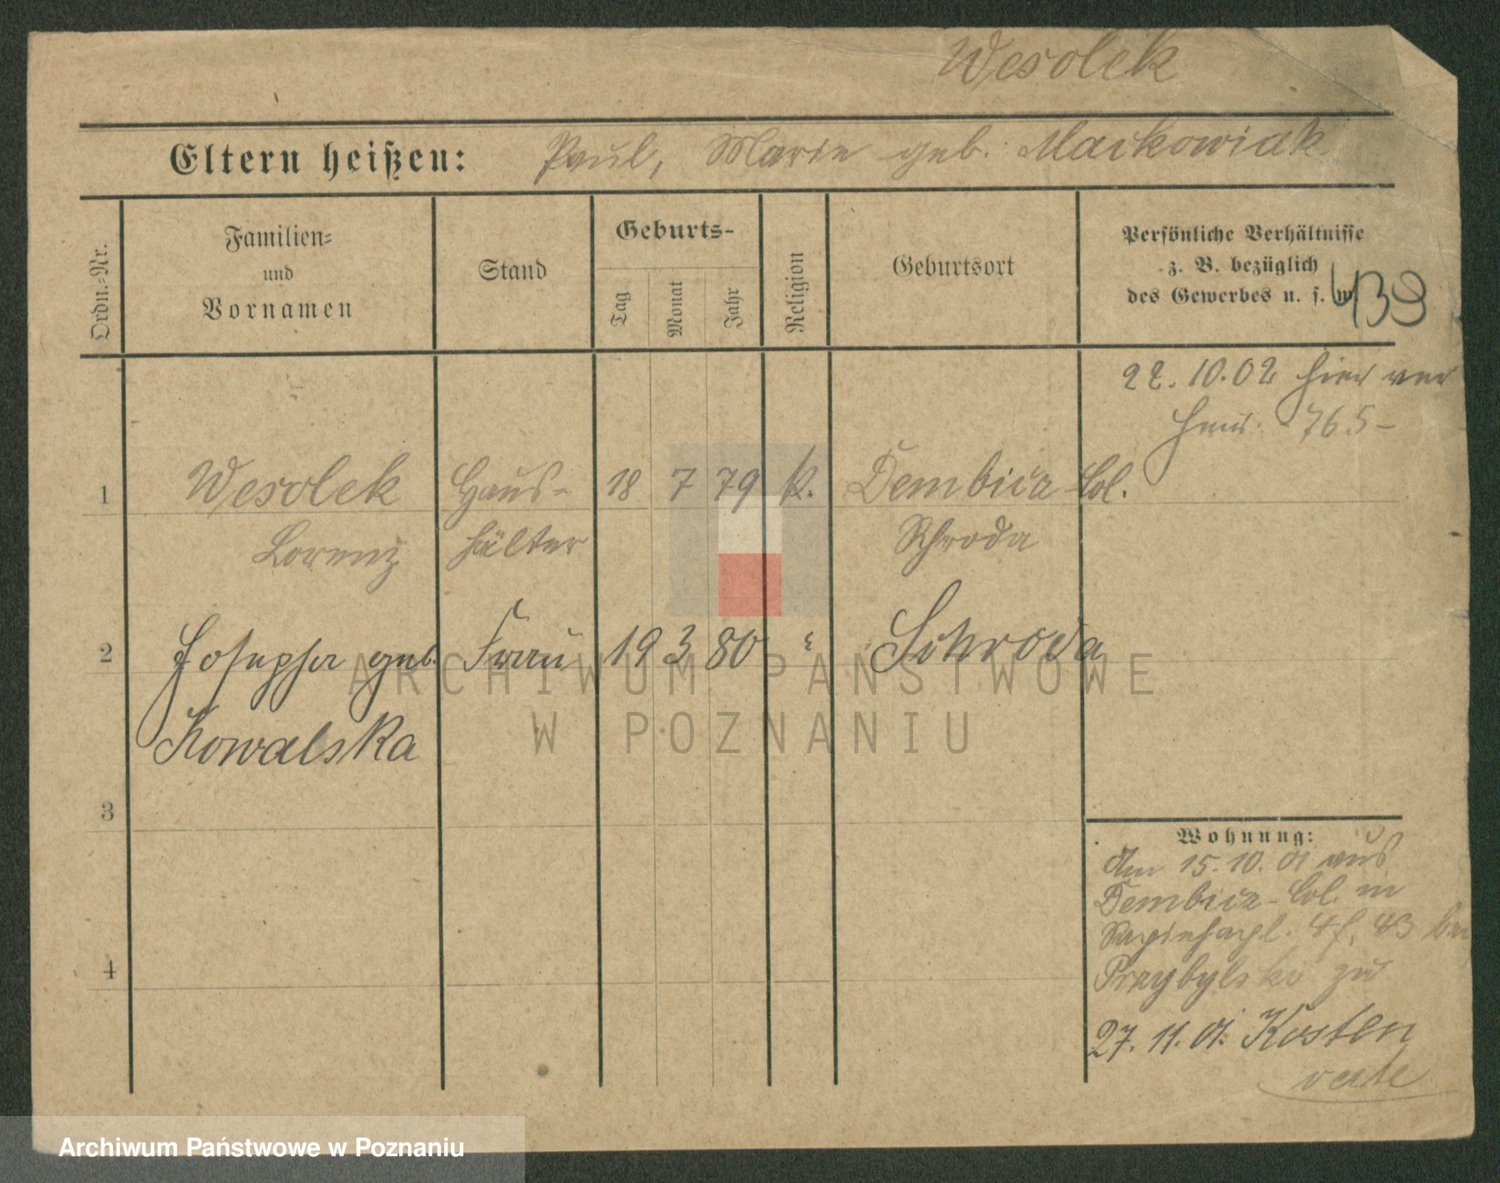 Wesolek
Eltern heißen: Paul, Marie geb. Maćkowiak
Ordn.-Nr.
Familien-
und
Vornamen
Stand
Geburts-
Tag
Monat
Jahr
Religion
Geburtsort
Persönliche Verhältnisse
z. B. bezüglich
des Gewerbes u. s. w.
139
22.10.02 hier ver
heir. 765-
1 Wesolek Haus- 18 7 79 k. Dembicz Col.
Lorenz hälter Schroda
2 Josepha geb. Frau 19 3 80 " Schroda
Kowalska
3
4
Wohnung:
Am 15.10.01 aus
Dembicz-Col. in
43 bei
Przybylski zu
27.11.01. Kosten
verte
ARCHIWUM PAŃSTWOWE
W POZNANIU
Archiwum Państwowe w Poznaniu